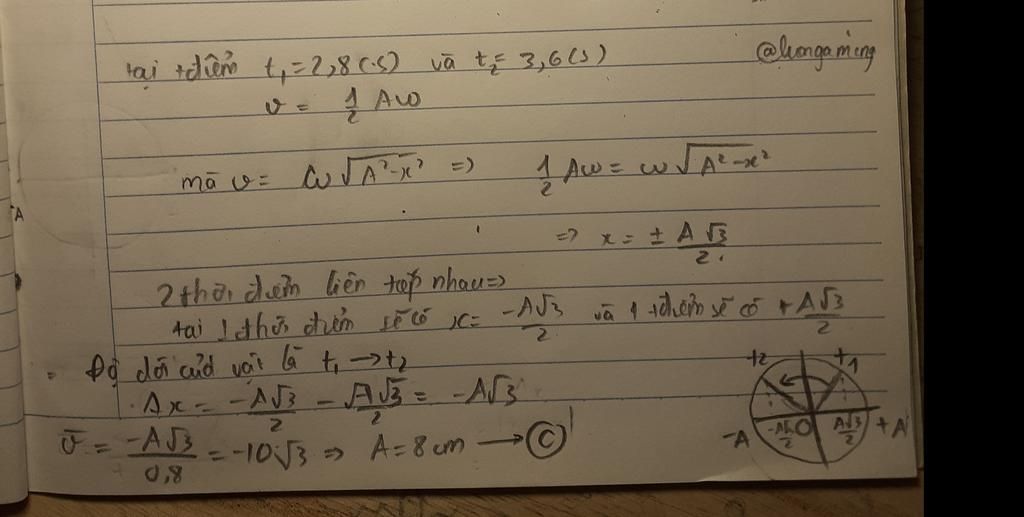 tại tđiểm t₁ = 2,8(s) và t₂ = 3,6(s) @luongaming
v = 1/2 Aω
mà v = ω√(A²-x²) => 1/2 Aω = ω√(A²-x²)
=> x = ± A√3/2
2 thời điểm liên tiếp nhau =>
tại 1 thời điểm sẽ có x = -A√3/2 và 1 tđiểm sẽ có +A√3/2
Độ dời của vật là t₁ → t₂
Δx = -A√3/2 - A√3/2 = -A√3
v̄ = -A√3/0,8 = -10√3 => A = 8cm → C
t2 t1
-A O A√3/2 +A
-A